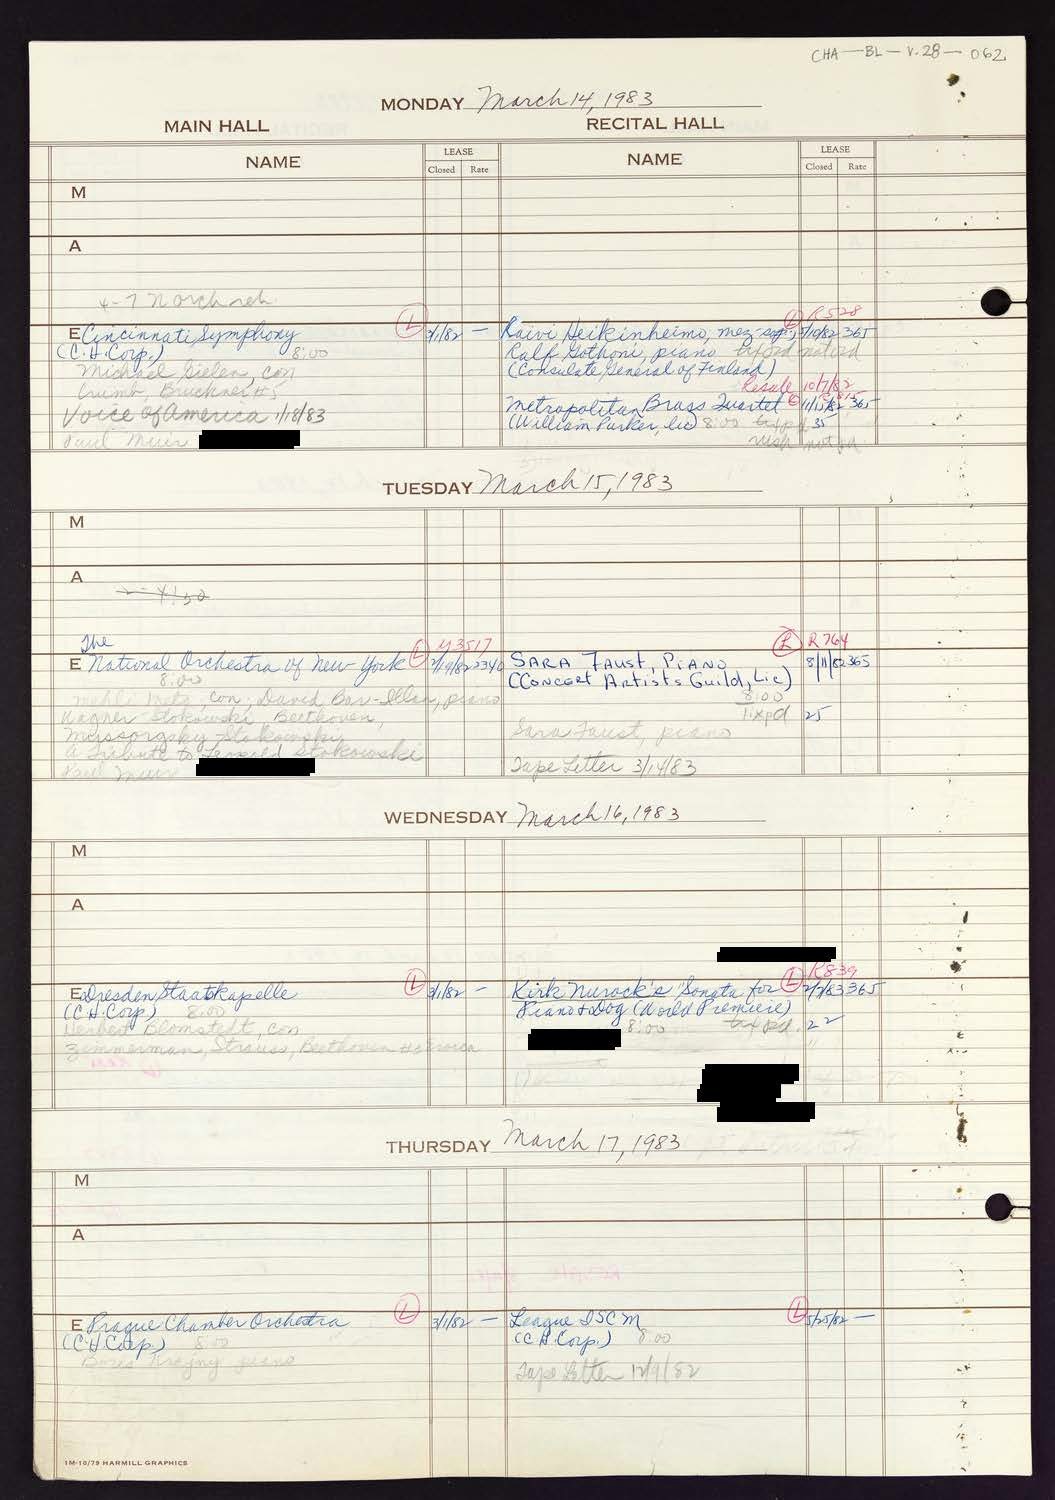 CHA—BL—V.28—062
MONDAY March 14, 1983
MAIN HALL
RECITAL HALL
NAME
LEASE
Closed Rate
NAME
LEASE
Closed Rate
M
A
4-7 No orch reh
E Cincinnati Symphony L 3/1/82 —
(C.H. Corp.) 8:00
Michael Gielen, con
Crumb, Bruckner #5
Voice of America 1/18/83
Paul Meier
L R528
Raivi Heikinheimo, mez-sop; 5/10/82 365
Ralf Gothoni, piano
(Consulate General of Finland)
Resale 10/7/82
Metropolitan Brass Quartet 11/15/82 365
(William Parker, lic) 8:00 35
not pd
TUESDAY March 15, 1983
M
A
2-4:30
The L Y3517
E National Orchestra of New York 2340
8:00
con; David Bar-Illan, piano
Wagner-Stokowski, Beethoven,
Mussorgsky-Stokowski
A Tribute to Leopold Stokowski
Paul Meier
R R764
SARA FAUST, PIANO 8/11/82 365
(CONCERT ARTISTS GUILD, LIC)
8:00
tixpd 25
Sara Faust, piano
Tape Letter 3/14/83
WEDNESDAY March 16, 1983
M
A
E Dresden Staatskapelle L 3/1/82 —
(C.H. Corp) 8:00
Herbert Blomstedt, con
Zimmerman, Strauss, Beethoven #3 Eroica
L R839
Kirk Nurock's "Sonata for 2/2/83 365
Piano & Dog (World Premiere)
8:00 tixpd. 22
THURSDAY March 17, 1983
M
A
E Prague Chamber Orchestra L 3/1/82 —
(C.H. Corp) 8:00
Boris Krajny piano
League ISCM L 5/25/82 —
(C.H. Corp.) 8:00
Tape Letter 12/9/82
1M-10/79 HARMILL GRAPHICS